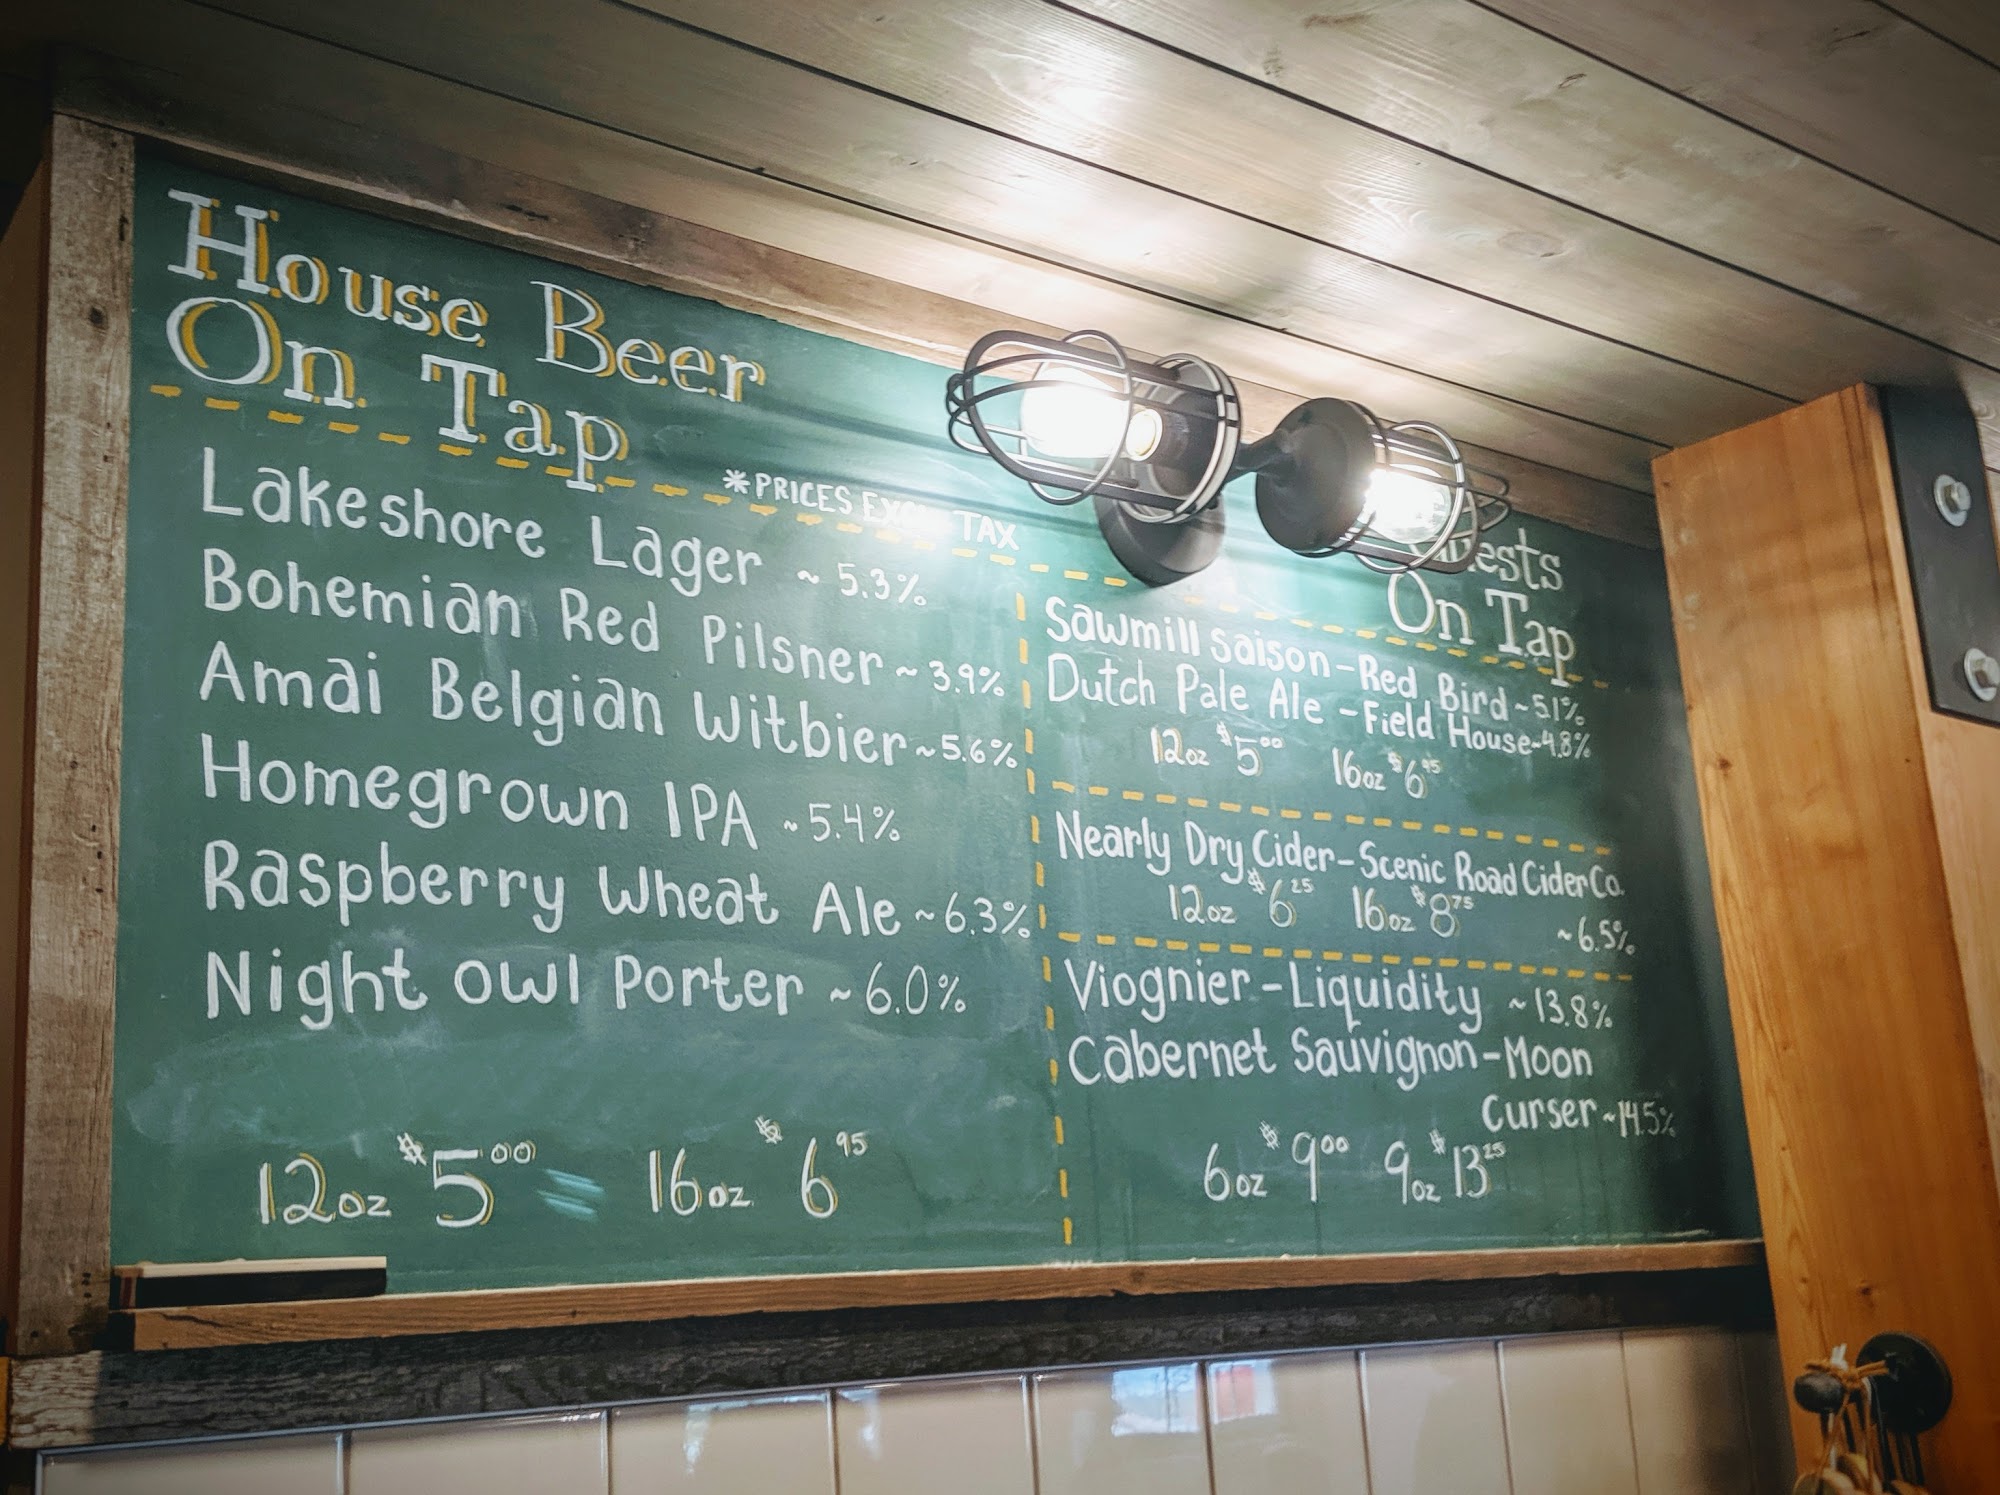 House Beer
On Tap
*PRICES TAX
Lakeshore Lager ~ 5.3%
Bohemian Red Pilsner ~ 3.9%
Amai Belgian Witbier ~ 5.6%
Homegrown IPA ~ 5.4%
Raspberry Wheat Ale ~ 6.3%
Night Owl Porter ~ 6.0%
12oz $5.00 16oz $6.95
Guests
On Tap
Sawmill Saison - Red Bird ~ 5.1%
Dutch Pale Ale - Field House - 4.8%
12oz $5.00 16oz $6.95
Nearly Dry Cider - Scenic Road Cider Co.
~ 6.5%
12oz $6.25 16oz $8.75
Viognier - Liquidity ~ 13.8%
Cabernet Sauvignon - Moon
Curser ~ 14.5%
6oz $9.00 9oz $13.25